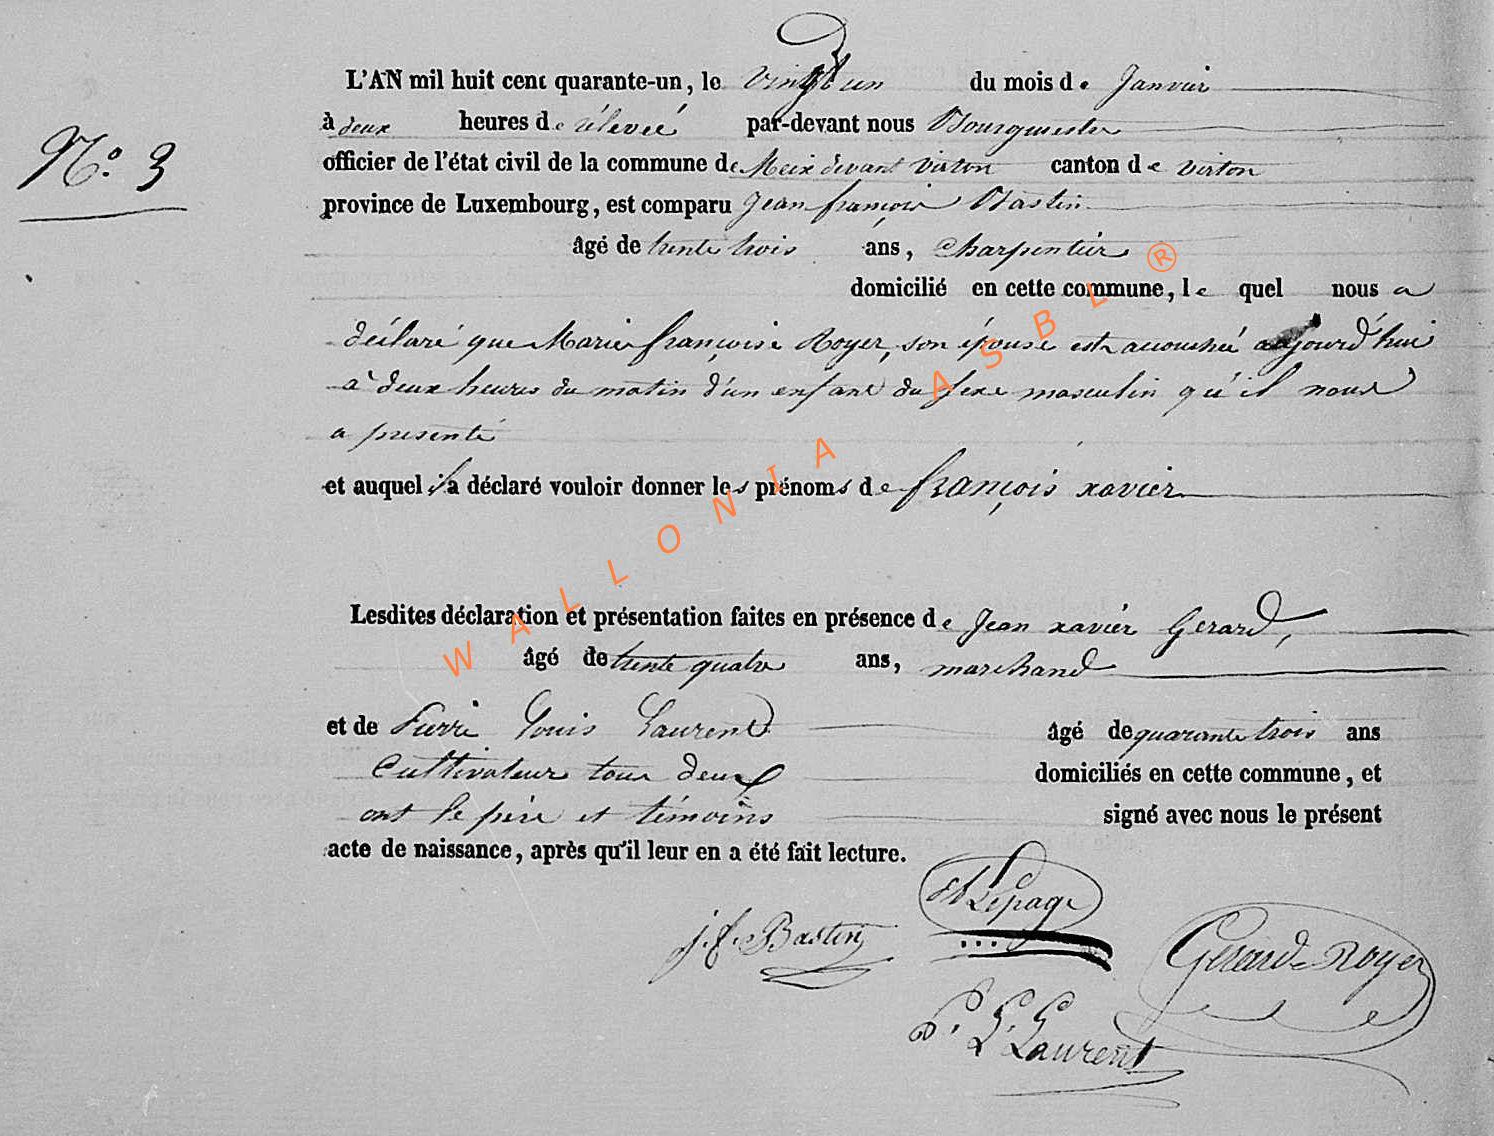 L'AN mil huit cent quarante-un, le vingt un du mois de Janvier
à deux heures de rélevée par-devant nous Bourgmestre
N.° 3
officier de l'état civil de la commune de Meix devant virton canton de virton
province de Luxembourg, est comparu Jean françois Bastin
âgé de trente trois ans, charpentier
domicilié en cette commune, le quel nous a
déclaré que Marie françoise Royer, son épouse est accouchée aujourd'hui
à deux heures du matin d'un enfant du sexe masculin qu'il nous
a presenté
et auquel il a déclaré vouloir donner les prénoms de françois xavier
Lesdites déclaration et présentation faites en présence de Jean xavier Gerard,
âgé de trente quatre ans, marchand
et de Pierre Louis Laurent âgé de quarante trois ans
Cultivateur tous deux domiciliés en cette commune, et
ont le père et témoins signé avec nous le présent
acte de naissance, après qu'il leur en a été fait lecture.
Lepage
j. f. Bastin
Gerard Royer
P. L. Laurent
WALLONIA ASBL ®